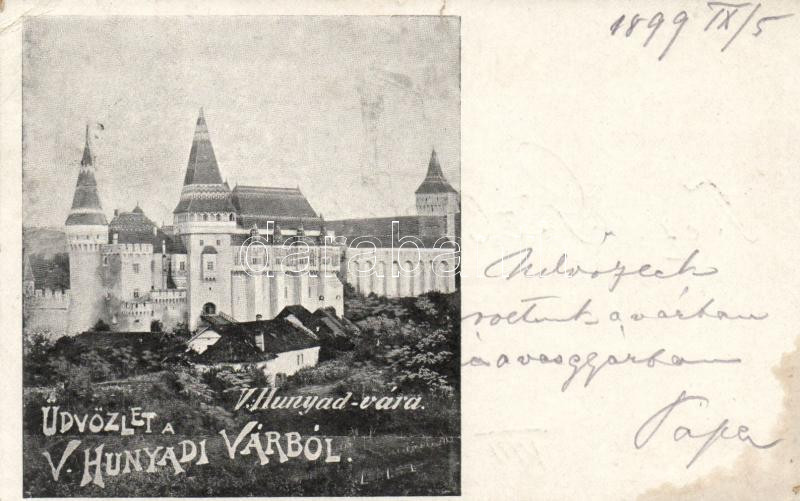 1899 IX/5
V. Hunyad-vára.
ÜDVÖZLET A
V. HUNYADI VÁRBÓL.
darabanth
voltunk a várban
és a vasgyárban
Papa